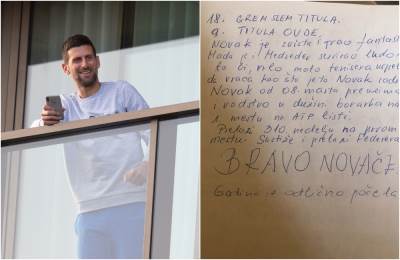 18. GREM SLEM TITULA.
9. TITULA OVDE,
NOVAK je zaista igrao fantast
Mada je i Medvedev servirao ludo
to bi, vrlo, malo tenisera
da vraća kao što je to Novak radi
Novak od 08. marta preuzima
i vodstvo u dužini boravka na
1. mestu na ATP listi.
Prelazi 310. nedelju na prvom
mestu. Stiže i prelazi Federera
BRAVO NOVAČE
Godina je odlično počela